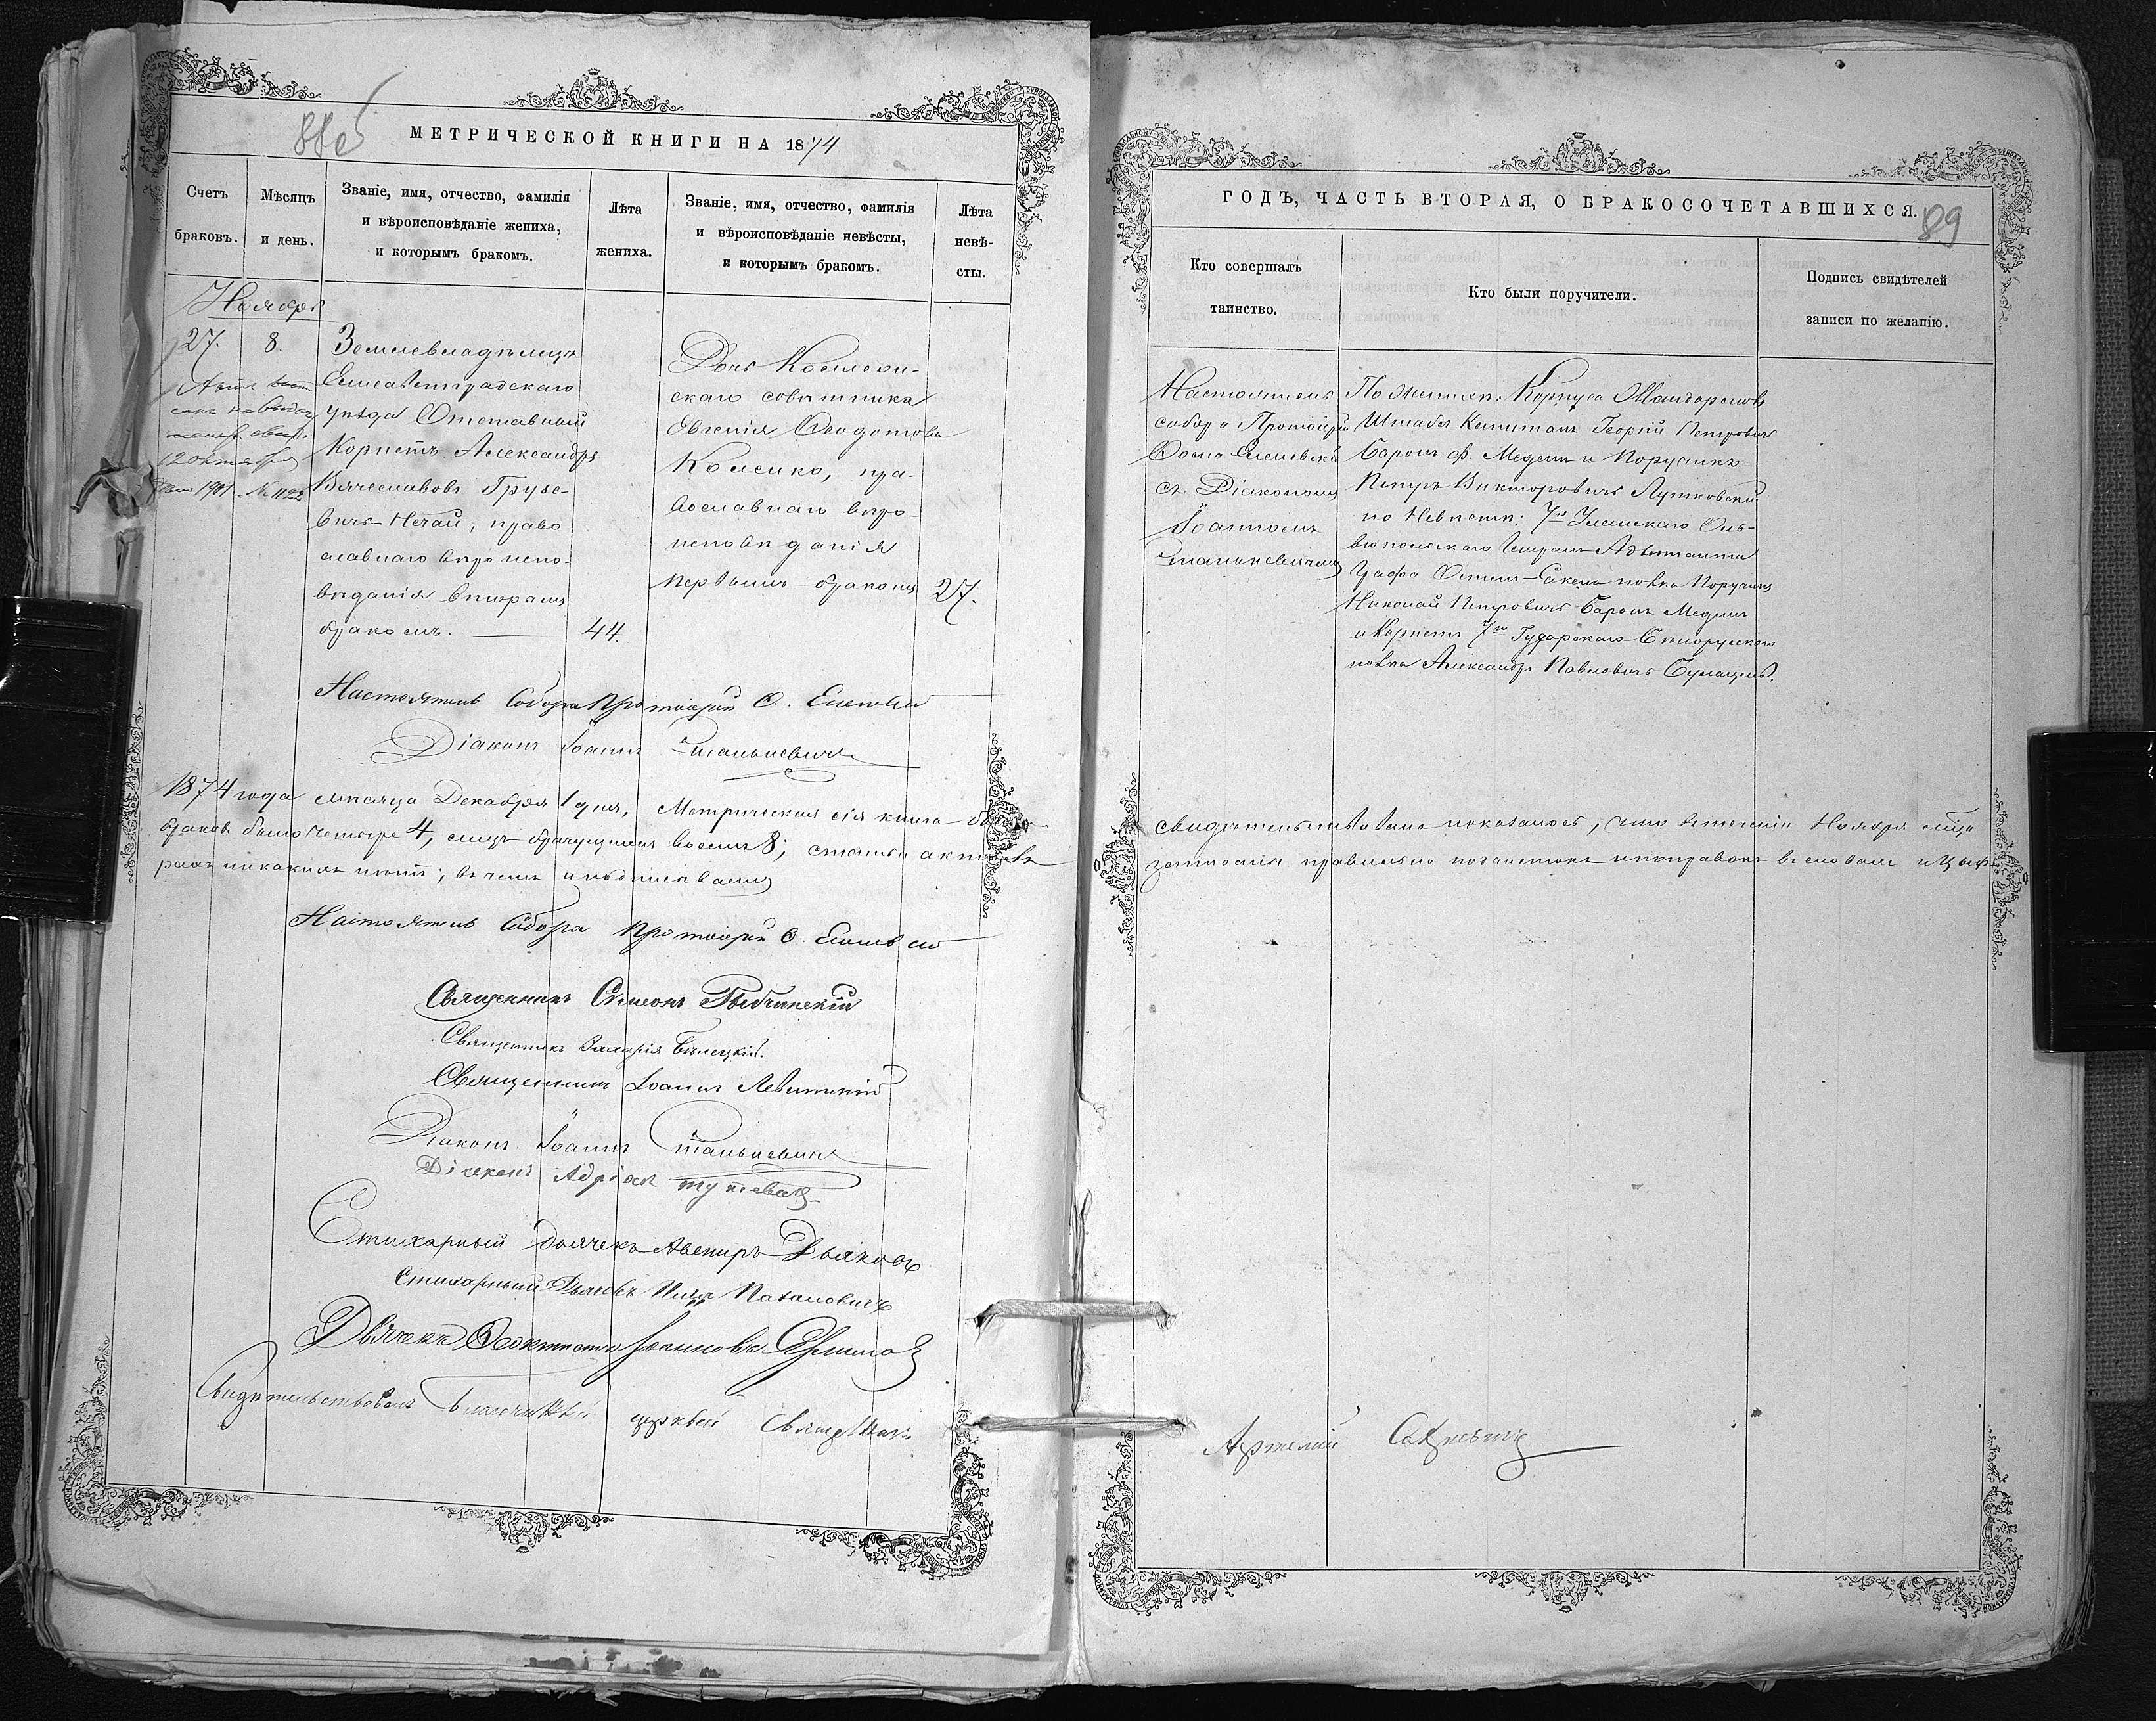 88об
МЕТРИЧЕСКОЙ КНИГИ НА 1874
Счетъ
браковъ.
Мѣсяцъ
и день.
Званіе, имя, отчество, фамилія
и вѣроисповѣданіе жениха,
и которымъ бракомъ.
Лѣта
жениха.
Званіе, имя, отчество, фамилія
и вѣроисповѣданіе невѣсты,
и которымъ бракомъ.
Лѣта
невѣ-
сты.
Ноябрь
27.
8.
12 октября
1901 № 1122
Землевладѣлецъ
Елисаветградскаго
уѣзда Отставный
Корнетъ Александръ
Вячеславовъ Грузе-
вичъ-Нечай, право
славнаго вѣроиспо-
вѣданія вторымъ
бракомъ.
44.
Дочь Коллежс-
скаго совѣтника
Евгенія Ѳеодотова
пра-
вославнаго вѣро-
исповѣданія
первымъ бракомъ
27.
Настоятель Собора Протоіерей Ѳ.
Діаконъ Іоаннъ Станкевичъ
1874 года мѣсяца Декабря 1 дня, Метрическая сія книга
браковъ было четыре 4, лицъ брачущихся восемь 8; статьи актовъ
рахъ никакихъ нѣтъ; въ чемъ и подписываемъ
Настоятель Собора Протоіерей Ѳ.
Священникъ Симеонъ
Священникъ Захарія Бѣлецкій.
Священникъ Іоаннъ Левитскій
Діаконъ Іоаннъ Станкевичъ
Діаконъ Адріан
Стихарный дьячекъ Авениръ Дьяковъ
Стихарный Дьячекъ
Дьячекъ Ѳеоктистъ Іоанновъ
Свидѣтельствовалъ Благочинный церквей Священникъ
ГОДЪ, ЧАСТЬ ВТОРАЯ, О БРАКОСОЧЕТАВШИХСЯ.
89
Кто совершалъ
таинство.
Кто были поручители.
Подпись свидѣтелей
записи по желанію.
Настоятель
собора Протоіерей
Ѳома
съ Діакономъ
Іоанномъ
Станкевичемъ
По женихѣ: Корпуса Жандармовъ
Штабсъ Капитанъ Георгій Петровичъ
Баронъ ф. Медемъ и Поручикъ
Петръ Викторовичъ Лутковскій
по Невѣстѣ: 7го Уланскаго Оль-
віопольскаго Генералъ Адъютанта
Графа Остенъ-Сакена полка Поручикъ
Николай Петровичъ Баронъ Медемъ
и Корнетъ 7го Гусарскаго Бѣлорусскаго
полка Александръ Павловичъ Булацель.
свидѣтельствована показалось, что въ теченіи Ноября мѣсца
записаны правильно подчистокъ и поправокъ въ словахъ и Цыф